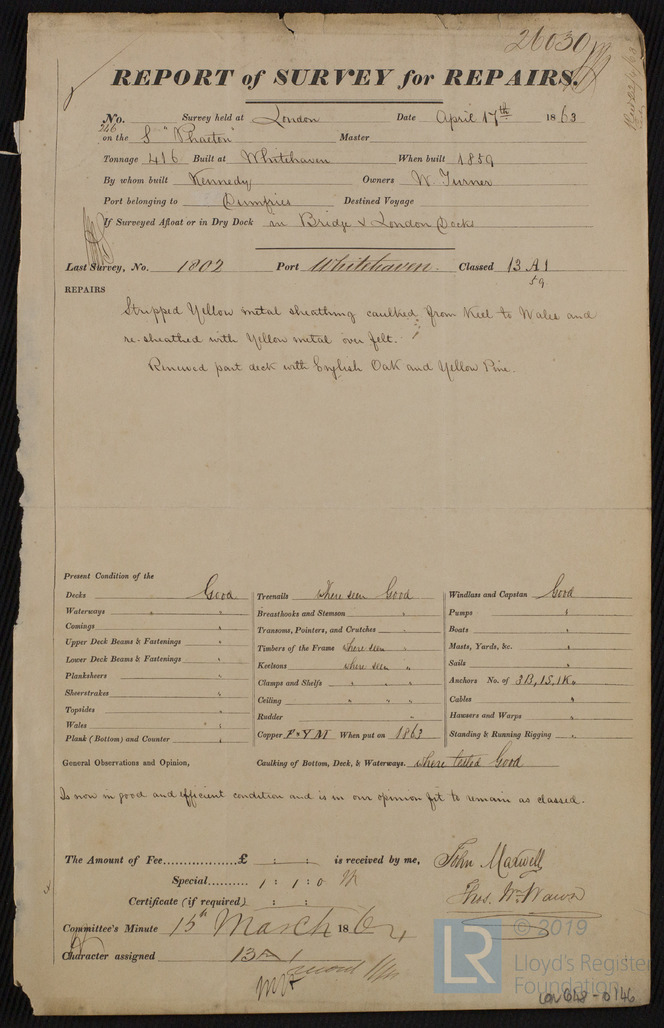 26030
REPORT of SURVEY for REPAIRS.
No. 246 Survey held at London Date April 17th 1863
on the S "Phaeton" Master
Tonnage 416 Built at Whitehaven When built 1859
By whom built Kennedy Owners W. Turner
Port belonging to Dumfries Destined Voyage
If Surveyed Afloat or in Dry Dock in Bridge & London Docks
Last Survey, No. 1802 Port Whitehaven. Classed 13 A1
59
REPAIRS
Stripped Yellow metal sheathing caulked from Keel to Wales and
re-sheathed with Yellow metal over felt.
Renewed part deck with English Oak and Yellow Pine.
Present Condition of the
Decks Good Treenails Where seen Good Windlass and Capstan Good
Waterways " " Breasthooks and Stemson " Pumps "
Comings " Transoms, Pointers, and Crutches " Boats "
Upper Deck Beams & Fastenings " Timbers of the Frame where seen " Masts, Yards, &c. "
Lower Deck Beams & Fastenings " Keelsons where seen " Sails "
Planksheers " Clamps and Shelfs " " " Anchors No. of 3B, 1S, 1K "
Sheerstrakes " Ceiling " " " " Cables "
Topsides " Rudder " Hawsers and Warps "
Wales " " Copper F & YM When put on 1863 Standing & Running Rigging "
Plank (Bottom) and Counter "
General Observations and Opinion, Caulking of Bottom, Deck, & Waterways. where tested Good
Is now in good and efficient condition and is in our opinion fit to remain as classed.
The Amount of Fee................£ : : is received by me, John Maxwell
Special.......... 1 : 1 : 0 Thos. W. Wawn
Certificate (if required) : :
Committee's Minute 15th March 1864
Character assigned 13 A 1
© 2019
LR
Lloyd's Register
Foundation
LON648-0146